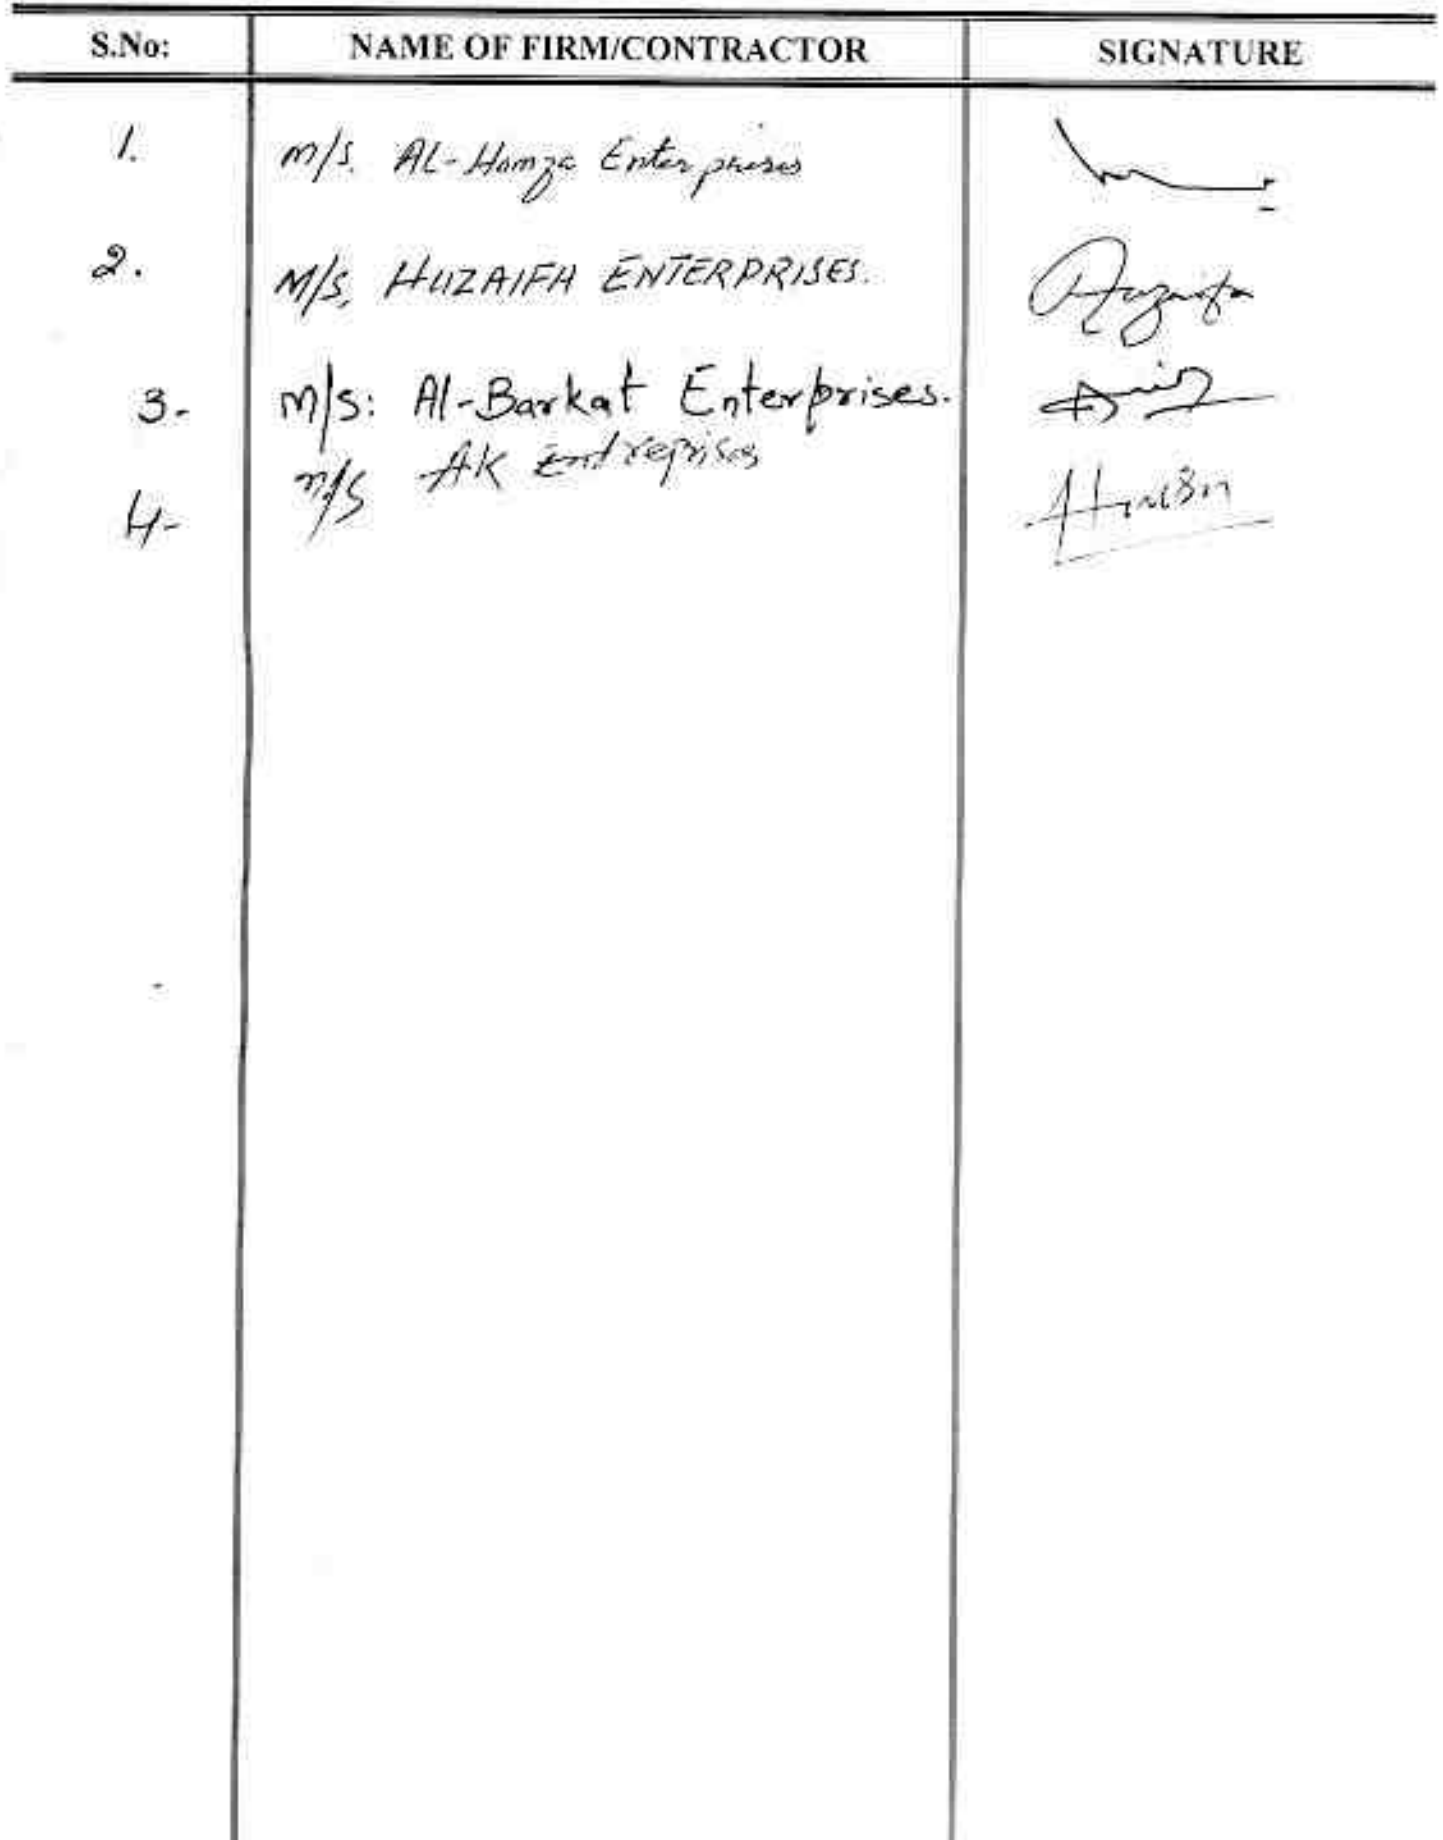 S.No: NAME OF FIRM/CONTRACTOR SIGNATURE
1. M/S. AL-Hamza Enterprises
2. M/S. HUZAIFA ENTERPRISES. Huzaifa
3- M/S: Al-Barkat Enterprises.
4- M/S AK Entreprises